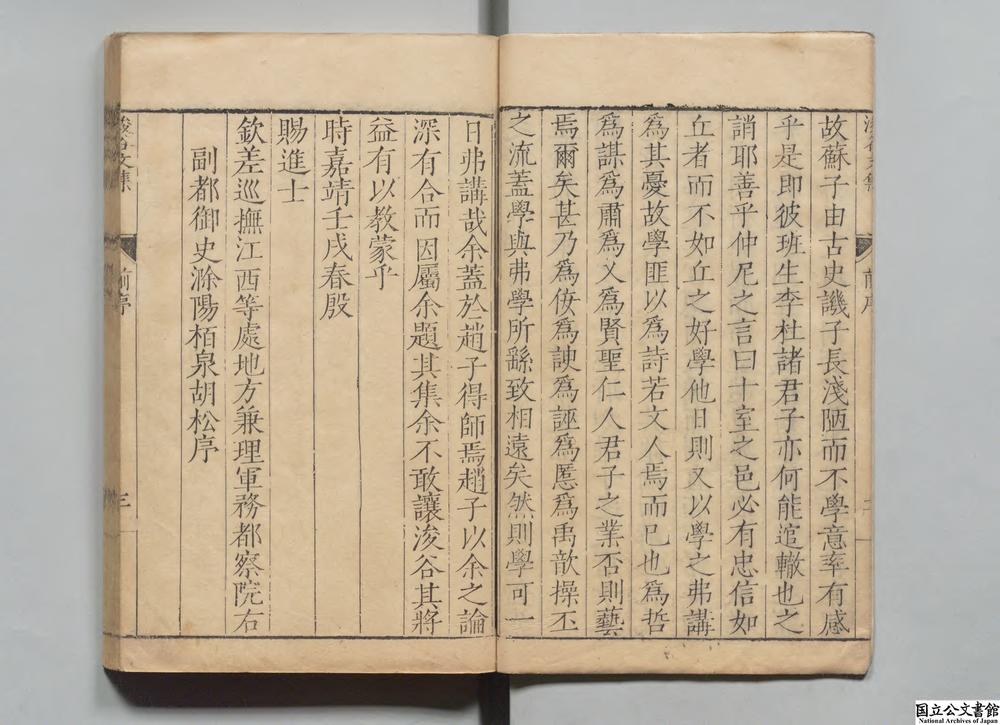 故蘇子由古史譏子長淺陋而不學意寔有感
乎是即彼班生李杜諸君子亦何能逭轍也之
誚耶善乎仲尼之言曰十室之邑必有忠信如
丘者而不如丘之好學他日則又以學之弗講
爲其憂故學匪以爲詩若文人焉而已也爲哲
爲謀爲肅爲乂爲賢聖仁人君子之業否則藝
焉爾矣甚乃爲佞爲諛爲誣爲慝爲禹歆操丕
之流蓋學與弗學所繇致相遠矣然則學可一
日弗講哉余蓋於趙子得師焉趙子以余之論
深有合而因屬余題其集余不敢讓浚谷其將
益有以教蒙乎
時嘉靖壬戌春殷
賜進士
欽差巡撫江西等處地方兼理軍務都察院右
副都御史滁陽栢泉胡松序
浚谷文集
前序
三
国立公文書館
National Archives of Japan